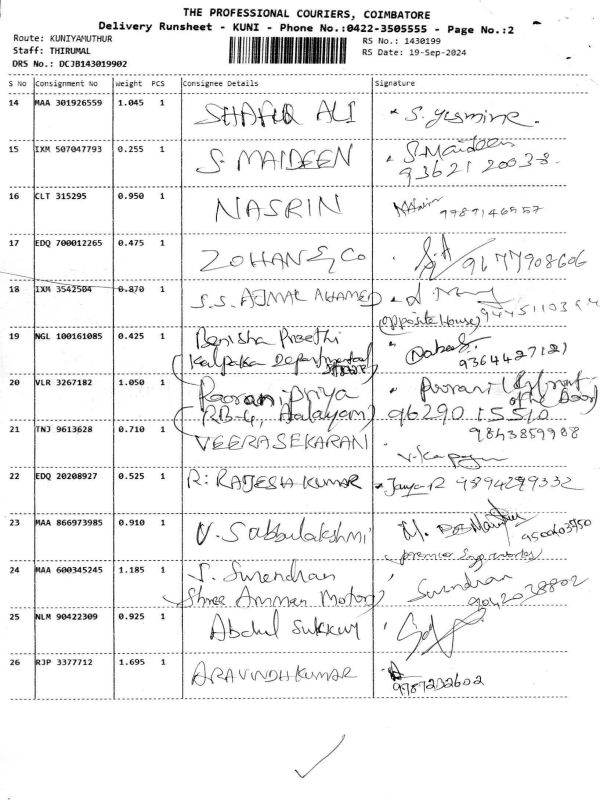 THE PROFESSIONAL COURIERS, COIMBATORE
Delivery Runsheet - KUNI - Phone No.:0422-3505555 - Page No.:2
Route: KUNIYAMUTHUR
Staff: THIRUMAL
DRS No.: DCJB143019902
RS No.: 1430199
RS Date: 19-Sep-2024
S No Consignment No Weight PCS Consignee Details Signature
14 MAA 301926559 1.045 1 SHAFUR ALI S. yusmine.
15 IXM 507047793 0.255 1 S. MAIDEEN S. Maideen
93621 20038
16 CLT 315295 0.950 1 NASRIN
9789146957
17 EDQ 700012265 0.475 1 ZOHAN & Co 9677908606
18 IXM 3542504 0.870 1 S.S. AJMAL AHAMED
(opposite House)
19 NGL 100161085 0.425 1 Benisha Preethi
(Kalpaka Departmental
9364427121
20 VLR 3267182 1.050 1 Pooranipriya Poorani (In front
of the Door)
(RB-4, Aalayam) 96290 15510
21 TNJ 9613628 0.710 1 VEERASEKARAN 9843859988
22 EDQ 20208927 0.525 1 R. RAJESH KUMAR Jaya R 9894299332
23 MAA 866973985 0.910 1 V. Subbulakshmi
9500603950
24 MAA 600345245 1.185 1 S. Surendran Surendran
(Shree Amman Motors) 9042038802
25 NLM 90422309 0.925 1 Abdul Sukkur
26 RJP 3377712 1.695 1 ARAVINDH KUMAR
9787232602